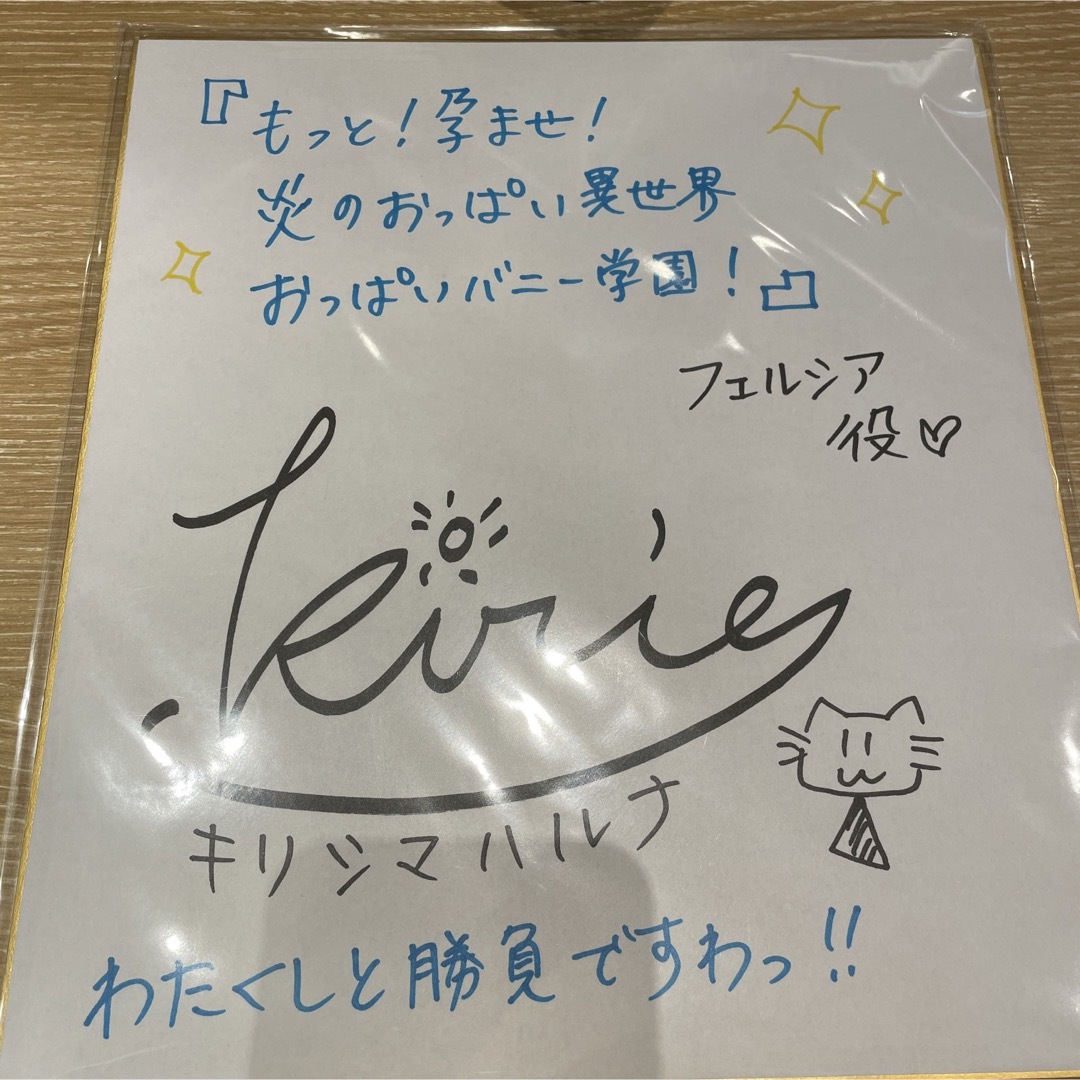 『もっと！孕ませ！
炎のおっぱい異世界
おっぱいバニー学園！』
フェルシア
役♡
Kiris
キリシマハルナ
わたくしと勝負ですわっ!!